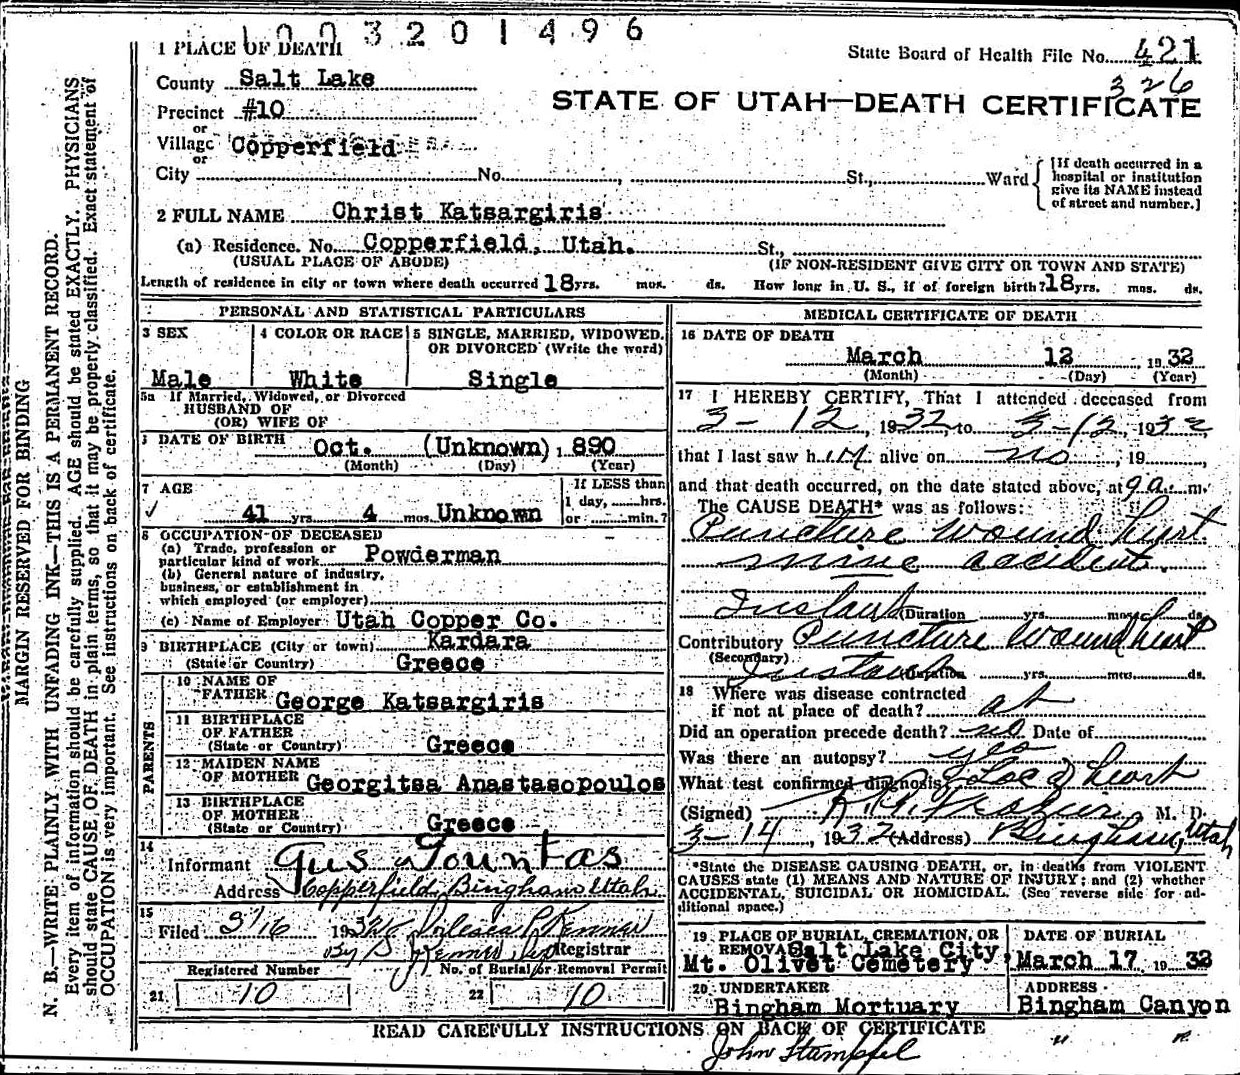 1003201496
1 PLACE OF DEATH
State Board of Health File No. 421
326
County Salt Lake
Precinct #10
STATE OF UTAH—DEATH CERTIFICATE
or
Village Copperfield
or
City No. St., Ward
[If death occurred in a
hospital or institution
give its NAME instead
of street and number.]
2 FULL NAME Christ Katsargiris
(a) Residence. No. Copperfield, Utah. St.,
(USUAL PLACE OF ABODE) (IF NON-RESIDENT GIVE CITY OR TOWN AND STATE)
Length of residence in city or town where death occurred 18 yrs. mos. ds. How long in U. S., if of foreign birth? 18 yrs. mos. ds.
PERSONAL AND STATISTICAL PARTICULARS
3 SEX
Male
4 COLOR OR RACE
White
5 SINGLE, MARRIED, WIDOWED,
OR DIVORCED (Write the word)
Single
5a If Married, Widowed, or Divorced
HUSBAND OF
(OR) WIFE OF
DATE OF BIRTH Oct. (Unknown), 890
(Month) (Day) (Year)
7 AGE
41 yrs 4 mos. Unknown
If LESS than
1 day, hrs.
or min.?
8 OCCUPATION OF DECEASED
(a) Trade, profession or
particular kind of work Powderman
(b) General nature of industry,
business, or establishment in
which employed (or employer)
(c) Name of Employer Utah Copper Co.
9 BIRTHPLACE (City or town) Kardara
(State or Country) Greece
PARENTS
10 NAME OF
FATHER George Katsargiris
11 BIRTHPLACE
OF FATHER
(State or Country) Greece
12 MAIDEN NAME
OF MOTHER Georgitsa Anastasopoulos
13 BIRTHPLACE
OF MOTHER
(State or Country) Greece
14
Informant Gus Tountas
Address Copperfield, Bingham Utah
15
Filed 3/16 1932
By Registrar
Registered Number No. of Burial or Removal Permit
21 10 22 10
MEDICAL CERTIFICATE OF DEATH
16 DATE OF DEATH
March 12, 1932
(Month) (Day) (Year)
17 I HEREBY CERTIFY, That I attended deceased from
3-12, 1932, to 3-12, 1932,
that I last saw him alive on no, 19
and that death occurred, on the date stated above, at 9 a. m.
The CAUSE DEATH* was as follows:
Puncture wound heart
mine accident.
Instant (Duration yrs. mos. ds.
Contributory Puncture wound heart
(Secondary)
Instant (Duration yrs. mos. ds.
18 Where was disease contracted
if not at place of death? at
Did an operation precede death? no Date of
Was there an autopsy? yes
What test confirmed diagnosis? Loc of heart
(Signed) M. D.
3-14, 1932 (Address) Bingham, Utah
*State the DISEASE CAUSING DEATH, or, in deaths from VIOLENT
CAUSES state (1) MEANS AND NATURE OF INJURY; and (2) whether
ACCIDENTAL, SUICIDAL OR HOMICIDAL. (See reverse side for ad-
ditional space.)
19 PLACE OF BURIAL, CREMATION, OR
REMOVAL Salt Lake City,
Mt. Olivet Cemetery
DATE OF BURIAL
March 17 1932
20 UNDERTAKER
Bingham Mortuary
ADDRESS
Bingham Canyon
READ CAREFULLY INSTRUCTIONS ON BACK OF CERTIFICATE
John Stampfel
MARGIN RESERVED FOR BINDING
N. B.—WRITE PLAINLY WITH UNFADING INK—THIS IS A PERMANENT RECORD.
Every item of information should be carefully supplied. AGE should be stated EXACTLY. PHYSICIANS
should state CAUSE OF DEATH in plain terms, so that it may be properly classified. Exact statement of
OCCUPATION is very important. See instructions on back of certificate.